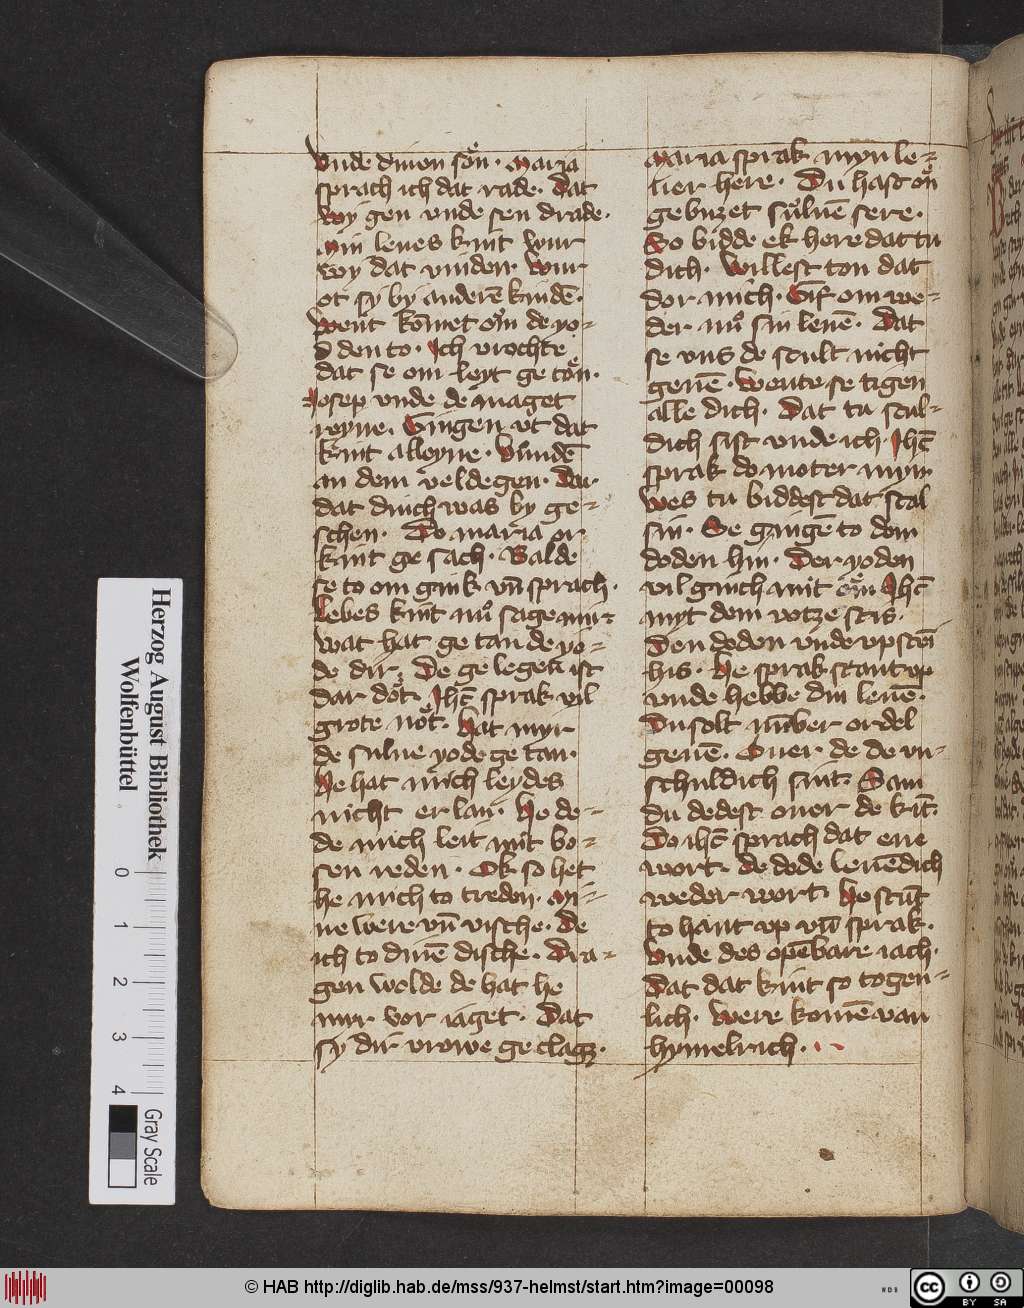 Vnde dinen soͤn · Maria
sprach ich dat rade · Dat
wy gen vnde sen drade ·
Min leues kint wur
wy dat vinden · Wur
ot sy by anderē kindē ·
Went komet om de yo-
dden to · Ich vrochte
dat se om leyt ge toͤn ·
Josep vnde de maget
reyne · Gingen vt dat
kint alleyne · Vundē
an dem velde gen · Da
dat dinch was by ge-
schen · Do maria or
kint ge sach · Balde
se to om gink vn̄ sprach ·
Leues kint nu sage mir
wat hat ge tan de yo-
de dir · De ge legen ist
dar dot · Jhc̄ sprak vil
grote noͤt · Hat myr
de sulue yode ge tan ·
He hat mich leydes
nicht er lan · He de-
de mich leit mit bo-
sen reden · Ok so het
he mich to treden · Mi-
ne were vn̄ vische · De
ich to dinē dische · Dra-
gen wolde de hat he
mir vor iaget · Dat
sy dir vrowe ge clagͦ ·
Maria sprak myn le-
uer here · Du hast oͤn
gebuzet suluē sere ·
So bidde ek here dat tu
dich · Willest ton dat
dor mich · Gif om we-
der nu sin leuē · Dat
se vns de scult nicht
geuē · Wente se tigen
alle dich · Dat tu scul-
dich sist vnde ich · Jhc̄
sprak do moter myn
Wes tu biddest dat scal
sin · Se gingē to dem
doden hin · Der yoden
vil ginch mit oͤm Jhc̄
myt dem votze stis ·
Den doden vnde vpsten
his · He sprak stant vp
vnde hebbe din leuē ·
Du solt nūber ordel
geuē · Ouer de de vn-
schuldich sint · Sam
du dedest ouer de kīt ·
Do ihc̄ sprach dat ene
wort · De dode leuēdich
weder wort · He stūt
to hant vp vn̄ sprak ·
Vnde des opēbare iach ·
Dat dat kint so togen-
lich · Were komē van
hymelrich ·
Herzog August Bibliothek
Wolfenbüttel
0 1 2 3 4
Gray Scale
© HAB http://diglib.hab.de/mss/937-helmst/start.htm?image=00098
WDB
cc BY SA